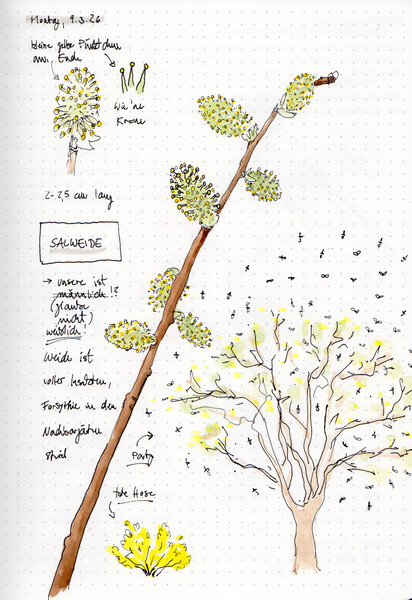 Montag, 9.3.26
kleine gelbe Pünktchen
am Ende
wie 'ne
Krone
2-2,5 cm lang
SALWEIDE
→ unsere ist
männlich!?
(glaube
nicht)
weiblich!
Weide ist
voller Insekten,
Forsythie in den
Nachbargärten
steril
Party
tote Hose